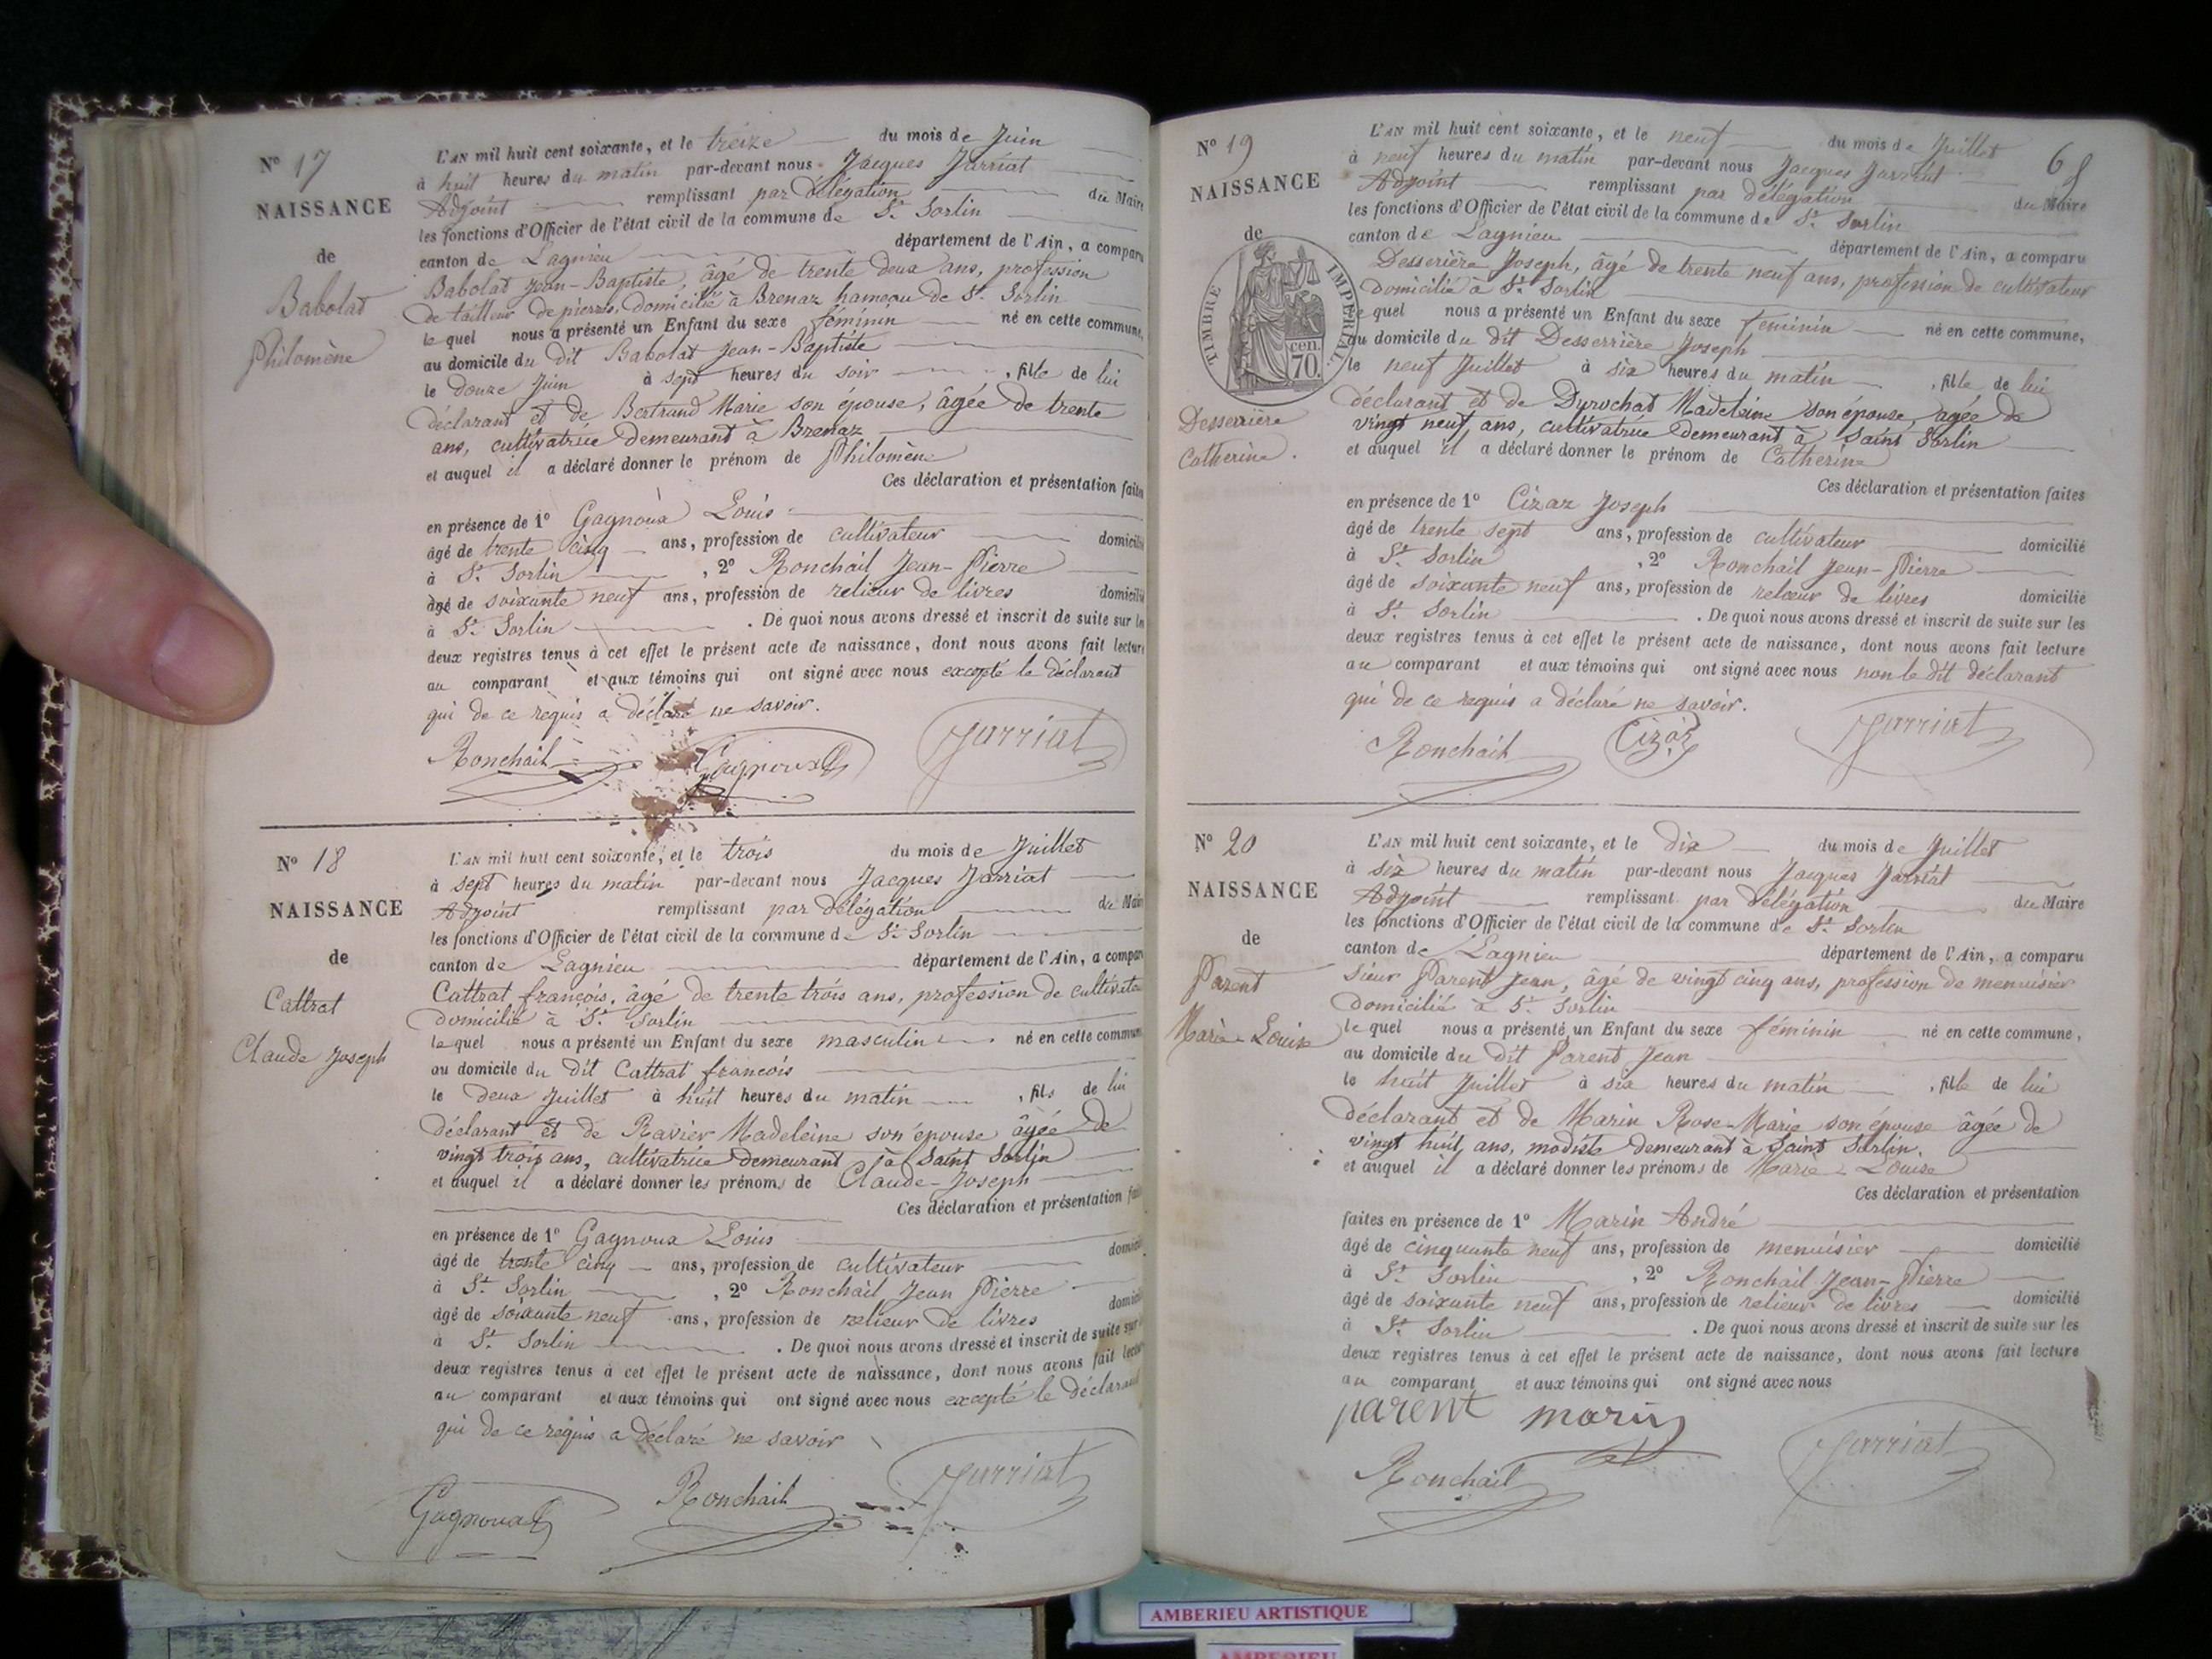 Nº 17
NAISSANCE
de
Babolat
Philomène
L'AN mil huit cent soixante, et le treize du mois de Juin
à huit heures du matin par-devant nous Jacques Jarriat
Adjoint remplissant par délégation du Maire
les fonctions d'Officier de l'état civil de la commune de St. Sorlin
canton de Lagnieu département de l'Ain, a comparu
Babolat Jean-Baptiste, âgé de trente deux ans, profession
de tailleur de pierres, domicilié à Brenaz hameau de St. Sorlin
le quel nous a présenté un Enfant du sexe féminin né en cette commune,
au domicile du dit Babolat Jean-Baptiste
le douze Juin à sept heures du soir, fille de lui
déclarant et de Bertrand Marie son épouse, âgée de trente
ans, cultivatrice demeurant à Brenaz
et auquel il a déclaré donner le prénom de Philomène
Ces déclaration et présentation faites
en présence de 1º Gagnoux Louis
âgé de trente cinq ans, profession de cultivateur domicilié
à St. Sorlin, 2º Ronchail Jean-Pierre
âgé de soixante neuf ans, profession de relieur de livres domicilié
à St. Sorlin. De quoi nous avons dressé et inscrit de suite sur les
deux registres tenus à cet effet le présent acte de naissance, dont nous avons fait lecture
au comparant et aux témoins qui ont signé avec nous excepté le déclarant
qui de ce requis a déclaré ne savoir.
Ronchail Gagnoux Jarriat
Nº 18
NAISSANCE
de
Cattrat
Claude Joseph
L'AN mil huit cent soixante, et le trois du mois de Juillet
à sept heures du matin par-devant nous Jacques Jarriat
Adjoint remplissant par délégation du Maire
les fonctions d'Officier de l'état civil de la commune de St. Sorlin
canton de Lagnieu département de l'Ain, a comparu
Cattrat françois, âgé de trente trois ans, profession de cultivateur
domicilié à St. Sorlin
le quel nous a présenté un Enfant du sexe masculin né en cette commune
au domicile du dit Cattrat francois
le deux Juillet à huit heures du matin, fils de lui
déclarant et de Ravier Madeleine son épouse âgée de
vingt trois ans, cultivatrice demeurant à Saint Sorlin
et auquel il a déclaré donner les prénoms de Claude-Joseph
Ces déclaration et présentation faites
en présence de 1º Gagnoux Louis
âgé de trente cinq ans, profession de cultivateur domicilié
à St. Sorlin, 2º Ronchail Jean Pierre
âgé de soixante neuf ans, profession de relieur de livres domicilié
à St. Sorlin. De quoi nous avons dressé et inscrit de suite sur
deux registres tenus à cet effet le présent acte de naissance, dont nous avons fait lecture
au comparant et aux témoins qui ont signé avec nous excepté le déclarant
qui de ce requis a déclaré ne savoir
Gagnoux Ronchail Jarriat
Nº 19
NAISSANCE
de
TIMBRE IMPERIAL
cen.
70.
Desserrière
Catherine.
68
L'AN mil huit cent soixante, et le neuf du mois de Juillet
à neuf heures du matin par-devant nous Jacques Jarriat
Adjoint remplissant par délégation du Maire
les fonctions d'Officier de l'état civil de la commune de St. Sorlin
canton de Lagnieu département de l'Ain, a comparu
Desserière Joseph, âgé de trente neuf ans, profession de cultivateur
domicilié à St. Sorlin
le quel nous a présenté un Enfant du sexe féminin né en cette commune,
au domicile du dit Desserrière Joseph
le neuf Juillet à six heures du matin, fille de lui
déclarant et de Durochat Madeleine son épouse âgée de
vingt neuf ans, cultivatrice demeurant à Saint Sorlin
et auquel il a déclaré donner le prénom de Catherine
Ces déclaration et présentation faites
en présence de 1º Cizaz Joseph
âgé de trente sept ans, profession de cultivateur domicilié
à St. Sorlin, 2º Ronchail Jean-Pierre
âgé de soixante neuf ans, profession de relieur de livres domicilié
à St. Sorlin. De quoi nous avons dressé et inscrit de suite sur les
deux registres tenus à cet effet le présent acte de naissance, dont nous avons fait lecture
au comparant et aux témoins qui ont signé avec nous non le dit déclarant
qui de ce requis a déclaré ne savoir.
Ronchail Cizaz Jarriat
Nº 20
NAISSANCE
de
Parent
Marie-Louise
L'AN mil huit cent soixante, et le dix du mois de Juillet
à six heures du matin par-devant nous Jacques Jarriat
Adjoint remplissant par délégation du Maire
les fonctions d'Officier de l'état civil de la commune de St. Sorlin
canton de Lagnieu département de l'Ain, a comparu
sieur Parent Jean, âgé de vingt cinq ans, profession de menuisier
domicilié à St. Sorlin
le quel nous a présenté un Enfant du sexe féminin né en cette commune,
au domicile du dit Parent Jean
le huit Juillet à six heures du matin, fille de lui
déclarant et de Marin Rose-Marie son épouse âgée de
vingt huit ans, modiste demeurant à Saint Sorlin.
et auquel il a déclaré donner les prénoms de Marie-Louise
Ces déclaration et présentation
faites en présence de 1º Marin André
âgé de cinquante neuf ans, profession de menuisier domicilié
à St. Sorlin, 2º Ronchail Jean-Pierre
âgé de soixante neuf ans, profession de relieur de livres domicilié
à St. Sorlin. De quoi nous avons dressé et inscrit de suite sur les
deux registres tenus à cet effet le présent acte de naissance, dont nous avons fait lecture
au comparant et aux témoins qui ont signé avec nous
parent marin
Ronchail Jarriat
AMBERIEU ARTISTIQUE
AMBERIEU